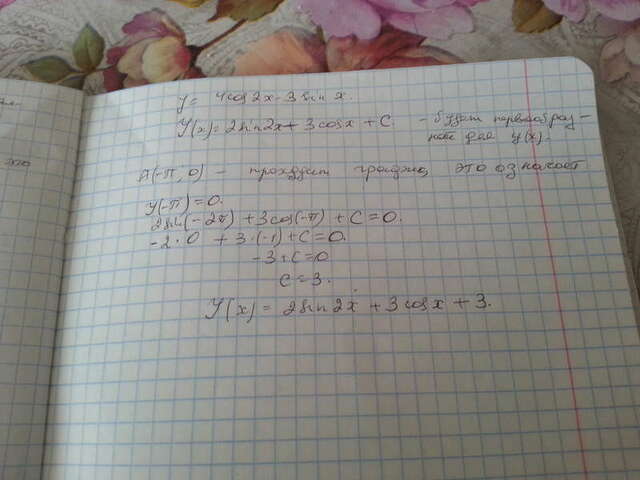 y = 4cos2x - 3sin x.
Y(x) = 2sin2x + 3cosx + C - будет первообраз-
ная для y(x).
A(-π; 0) - проходит график, это означает
Y(-π) = 0.
2sin(-2π) + 3cos(-π) + C = 0.
-2·0 + 3·(-1) + C = 0.
-3 + C = 0
C = 3.
Y(x) = 2sin2x + 3cosx + 3.